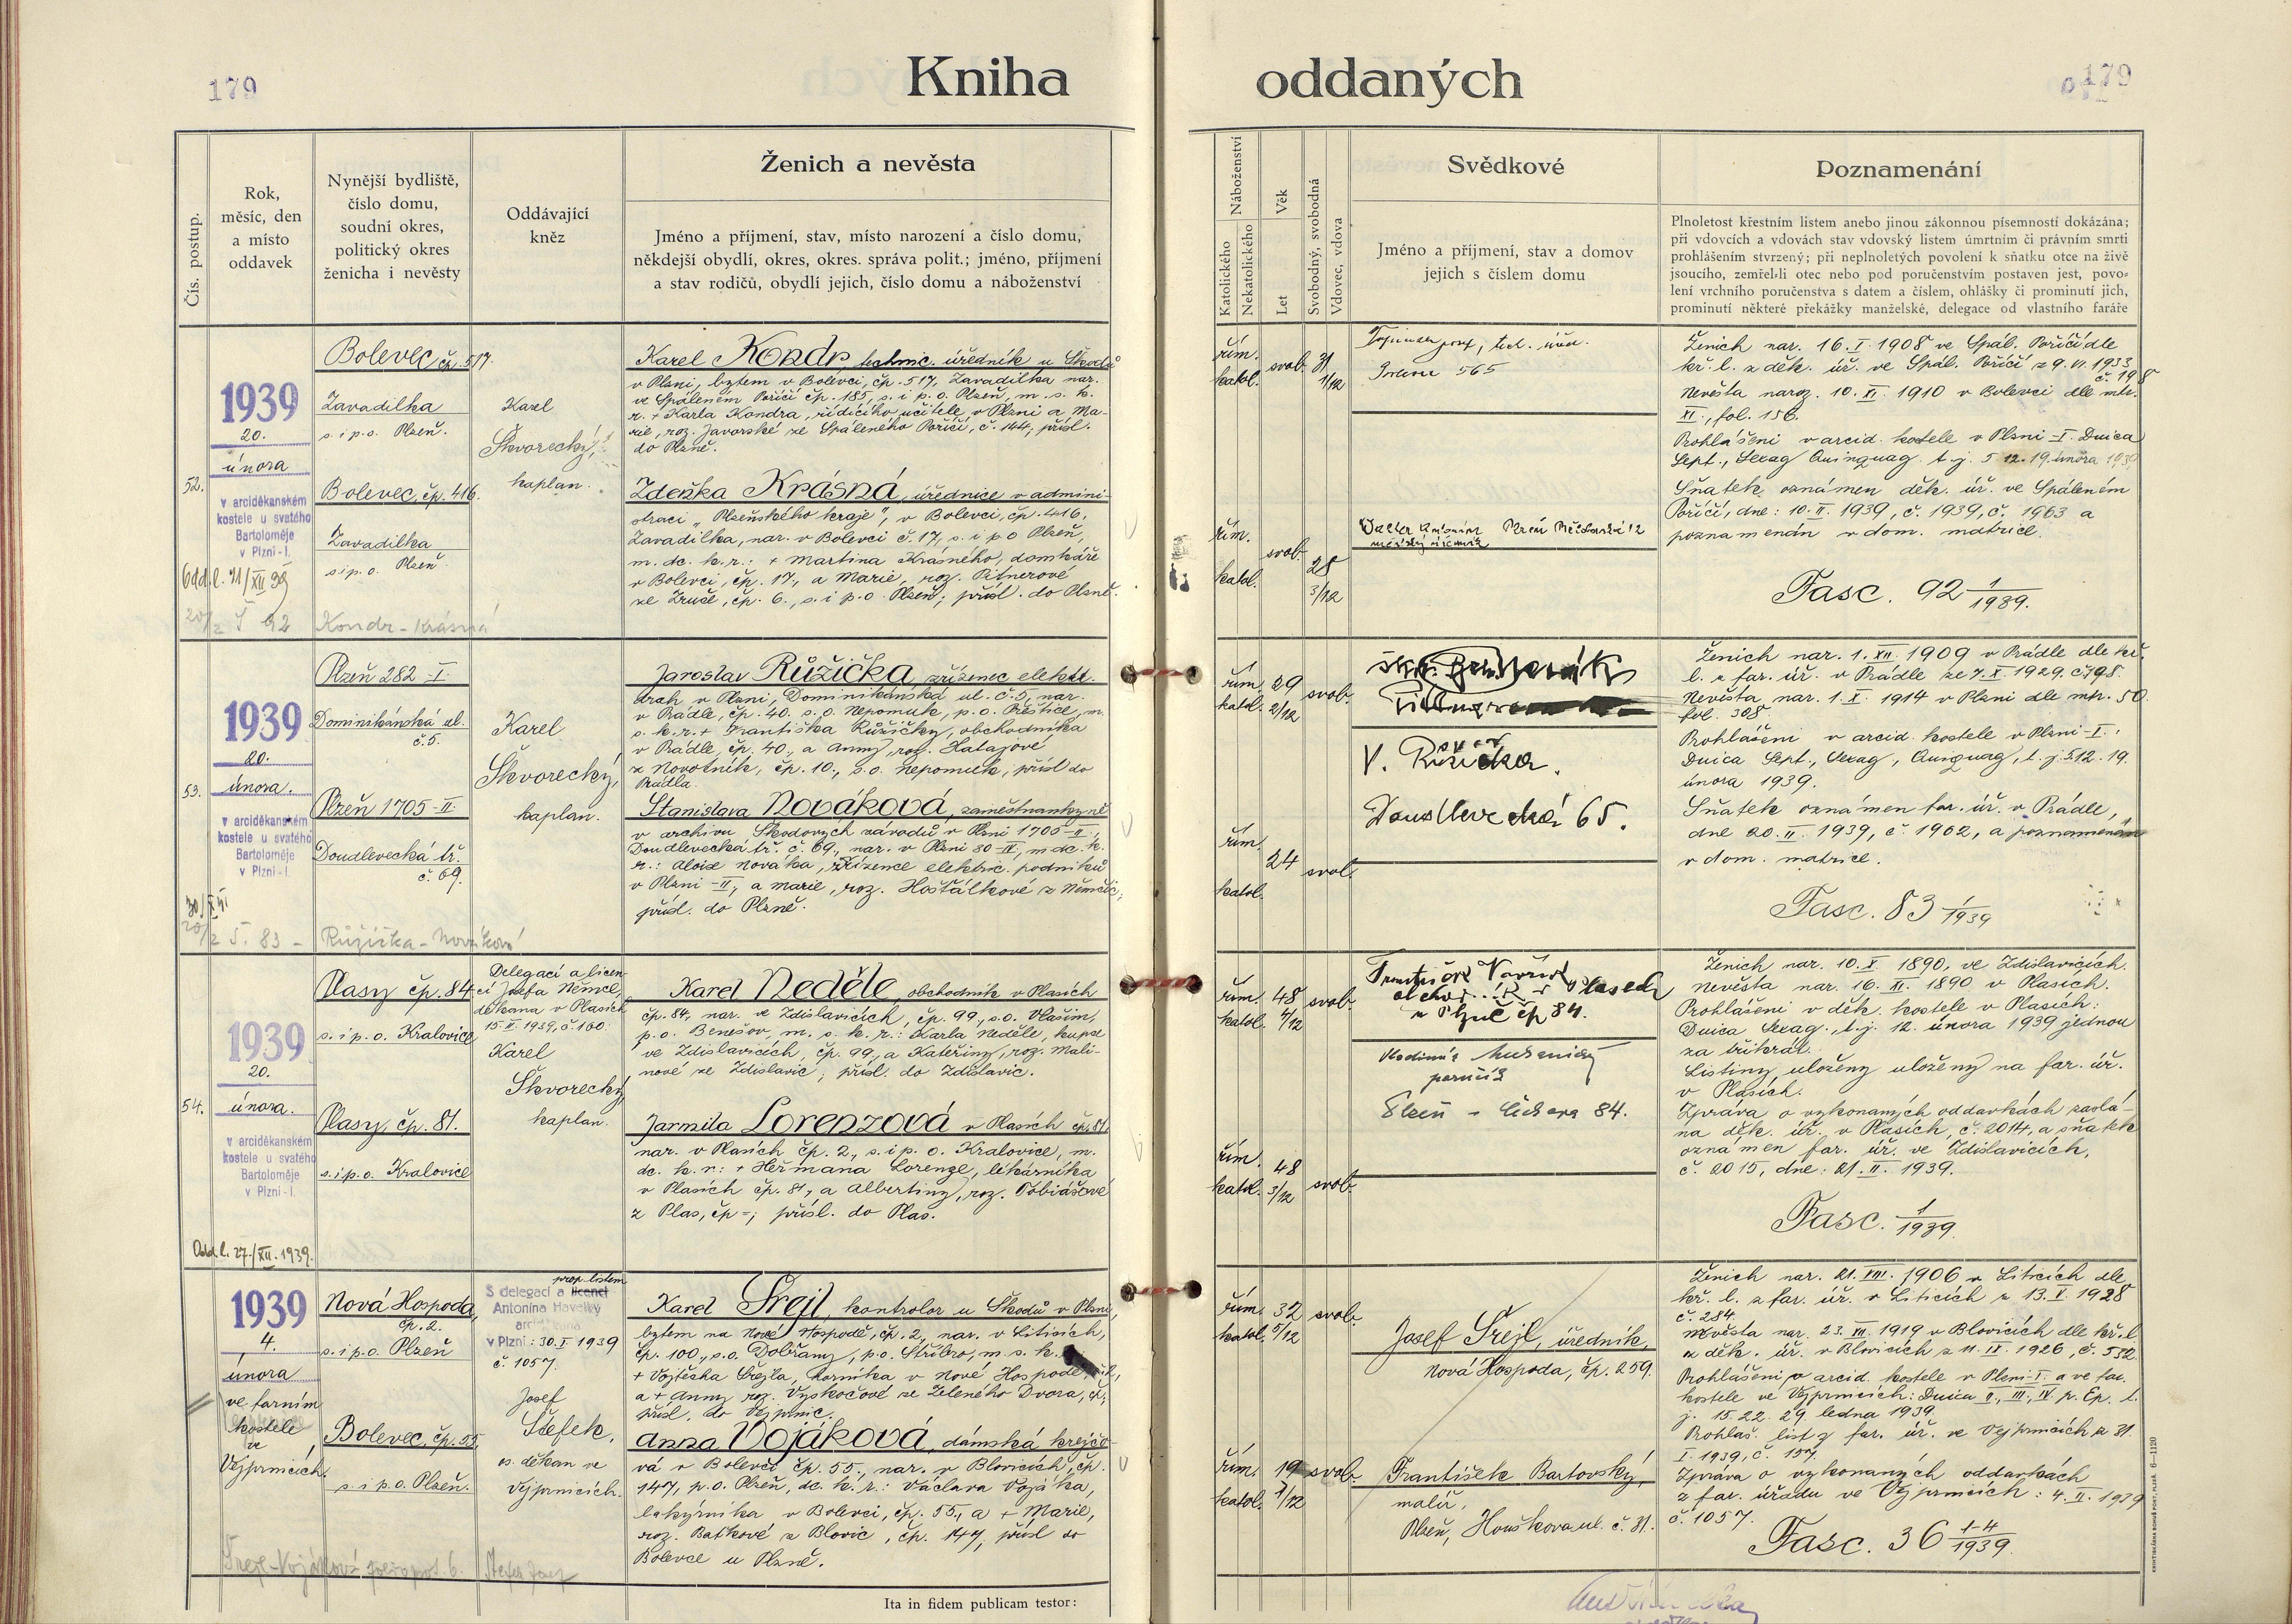 179
Kniha
oddaných
179
Čís. postup.
Rok,
měsíc, den
a místo
oddavek
Nynější bydliště,
číslo domu,
soudní okres,
politický okres
ženicha i nevěsty
Oddávající
kněz
Ženich a nevěsta
Jméno a příjmení, stav, místo narození a číslo domu,
někdejší obydlí, okres, okres. správa polit.; jméno, příjmení
a stav rodičů, obydlí jejich, číslo domu a náboženství
Náboženství
Katolického
Nekatolického
Věk
Let
Svobodný, svobodná
Vdovec, vdova
Svědkové
Jméno a příjmení, stav a domov
jejich s číslem domu
Poznamenání
Plnoletost křestním listem anebo jinou zákonnou písemností dokázána;
při vdovcích a vdovách stav vdovský listem úmrtním či právním smrti
prohlášením stvrzený; při neplnoletých povolení k sňatku otce na živě
jsoucího, zemřel-li otec nebo pod poručenstvím postaven jest, povo-
lení vrchního poručenstva s datem a číslem, ohlášky či prominutí jich,
prominutí některé překážky manželské, delegace od vlastního faráře
52.
1939
20.
února
v arciděkanském
kostele u svatého
Bartoloměje
v Plzni-I.
Bolevec čp. 517.
Zavadilka
s. i p. o. Plzeň.
Bolevec, čp. 416.
Zavadilka
s i p. o. Plzeň
Kondr - Krásná
Karel
Škvorecký,
kaplan.
Karel Kondr, technic. úředník u Škodů
v Plzni, bytem v Bolevci, čp. 517, Zavadilka nar.
ve Spáleném Poříčí čp. 185, s. i p. o. Plzeň, m. s. k.
r. + Karla Kondra, řídícího učitele, v Plzni a Ma-
rie, roz. Javorské ze Spáleného Poříčí, č. 144; přísl.
do Plzně.
Zdeňka Krásná, úřednice v admini-
straci „Plzeňského kraje", v Bolevci, čp. 416,
Zavadilka, nar. v Bolevci č. 17, s. i p o Plzeň,
m. dc. k. r.: + Martina Krásného, domkáře
v Bolevci, čp. 17, a Marie, roz. Pitnerové
ze Zruče, čp. 6., s. i p. o. Plzeň; přísl. do Plzně.
řím.
katol.
svob.
31
1/12
řím.
katol.
svob.
28
3/12
565
Ženich nar. 16. I. 1908 ve Spál. Poříčí dle
kř. l. z děk. úř. ve Spál. Poříčí z 9. VI. 1933
č. 198
Nevěsta naroz. 10. XI. 1910 v Bolevci dle mtr.
XI., fol. 156.
Prohlášeni v arcid. kostele v Plzni-I. Dnica
Sept., Sexag Quinquag. t. j. 5 12. 19. února 1939
Sňatek oznámen děk. úř. ve Spáleném
Poříčí, dne: 10. II. 1939, č. 1939, č. 1963 a
poznamenán v dom. matrice.
Fasc. 92 1/1939.
53.
1939
20.
února.
v arciděkanském
kostele u svatého
Bartoloměje
v Plzni-I.
Plzeň 282-I.
Dominikánská ul.
č. 5.
Plzeň 1705-II.
Doudlevecká tř.
č. 69.
Růžička - Nováková
Karel
Škvorecký,
kaplan.
Jaroslav Růžička, zřízenec elektr.
drah v Plzni, Dominikánská ul. č. 5, nar.
v Prádle, čp. 40. s. o. Nepomuk, p. o. Přeštice, m.
s. k. r. + Františka Růžičky, obchodníka
v Prádle, čp. 40., a Anny, roz. Hatajové
z Novotník, čp. 10., s. o. Nepomuk; přísl do
Prádla.
Stanislava Nováková, zaměstnankyně
v archivu Škodových závodů v Plzni 1705-II.,
Doudlevecká tř. č. 69., nar. v Plzni 80-IV, m dc. k.
r.: Aloise Nováka, zřízence elektric. podniků
v Plzni-II, a Marie, roz. Hošťálkové z Němčic;
přísl. do Plzně.
řím.
katol.
29
2/12
svob.
řím.
katol.
24
svob.
V. Růžička.
65.
Ženich nar. 1. XII. 1909 v Prádle dle kř.
l. z far. úř. v Prádle ze 7. X. 1929. č. 798.
Nevěsta nar. 1. X. 1914 v Plzni dle mtr. 50.
fol. 308
Prohlášeni v arcid. kostele v Plzni-I.
Dnica Sept., Sexag, Quinquag, t. j. 5. 12. 19.
února 1939.
Sňatek oznámen far. úř. v Prádle,
dne 20. II. 1939, č. 1962, a poznamenán
v dom. matrice.
Fasc. 83 1/1939
54.
1939
20.
února.
v arciděkanském
kostele u svatého
Bartoloměje
v Plzni-I.
Odd. l. 27./XII. 1939.
Plasy čp. 84
s. i p. o. Kralovice
Plasy, čp. 81.
s. i p. o. Kralovice
Delegací a licen-
cí Josefa Němce,
děkana v Plasích
15. II. 1939, č. 160.
Karel
Škvorecký,
kaplan.
Karel Neděle, obchodník v Plasích
čp. 84, nar. ve Zdislavicích, čp. 99, s. o. Vlašim,
p. o. Benešov, m. s. k. r.: Karla Neděle, kupce
ve Zdislavicích, čp. 99, a Kateřiny, roz. Mali-
nové ze Zdislavic; přísl. do Zdislavic.
Jarmila Lorenzová v Plasích čp. 81,
nar. v Plasích čp. 2., s. i p. o. Kralovice, m.
dc. k. r.: + Heřmana Lorenze, lékárníka
v Plasích čp. 81, a Albertiny, roz. Tobiášové
z Plas, čp -; přísl. do Plas.
řím.
katol.
48
4/12
svob.
řím.
katol.
48
3/12
svob.
čp 84.
Plzeň - 84.
Ženich nar. 10. X. 1890, ve Zdislavicích.
Nevěsta nar. 16. XI. 1890 v Plasích.
Prohlášeni v děk. kostele v Plasích:
Dnica Sexag., t. j. 12. února 1939 jednou
za třikrát.
Listiny uloženy uloženy na far. úř.
v Plasích.
Zpráva o vykonaných oddavkách zaslá-
na děk. úř. v Plasích, č. 2014, a sňatek
oznámen far. úř. ve Zdislavicích,
č. 2015, dne: 21. II. 1939.
Fasc. 1/1939.
1939
4.
února
ve farním
kostele
ve
Vejprnicích.
Nová Hospoda,
čp. 2.
s. i p. o. Plzeň
Bolevec, čp. 55,
s. i p. o. Plzeň.
prop. listem
S delegací a licencí
Antonína Havelky
arciděkana
v Plzni: 30. I. 1939
č. 1057.
Josef
Štefek,
os. děkan ve
Vejprnicích.
Karel Šrejl, kontrolor u Škodů v Plzni,
bytem na Nové Hospodě, čp. 2., nar. v Liticích,
čp. 100., s. o. Dobřany, p. o. Stříbro, m. s. k.
+ Vojtěcha Šrejla, horníka v Nové Hospodě,
a + Anny roz. Vyskočové ze Zeleného Dvora,
přísl. do Vejprnic.
Anna Vojáková, dámská krejčo-
vá v Bolevci čp. 55., nar. v Blovicích, čp.
147, p. o. Plzeň, dc. k. r.: Václava Vojáka,
lakýrníka v Bolevci, čp. 55., a + Marie,
roz. Baťkové z Blovic, čp. 147, přísl do
Bolevce u Plzně.
řím.
katol.
32
5/12
svob.
řím.
katol.
19
svob.
Josef Šrejl, úředník,
Nová Hospoda, čp. 259.
František Bartovský,
malíř,
Plzeň, Houškova ul. č. 31.
Ženich nar. 21. VIII. 1906 v Liticích dle
kř. l. z far. úř. v Liticích z 13. V. 1928
č. 284
Nevěsta nar. 23. VI. 1919 v Blovicích dle kř. l.
z děk. úř. v Blovicích z 11. IX. 1926, č. 532
Prohlášeni v arcid. kostele v Plzni-I. a ve far.
kostele ve Vejprnicích: Dnica II., III., IV. p. Ep. t.
j. 15. 22. 29. ledna 1939
Prohláš. list z far. úř. ve Vejprnicích z 31.
I. 1939, č. 157.
Zpráva o vykonaných oddavkách
z far. úřadu ve Vejprnicích: 4. II. 1939
č. 1057.
Fasc. 36 1-4/1939
Ita in fidem publicam testor: